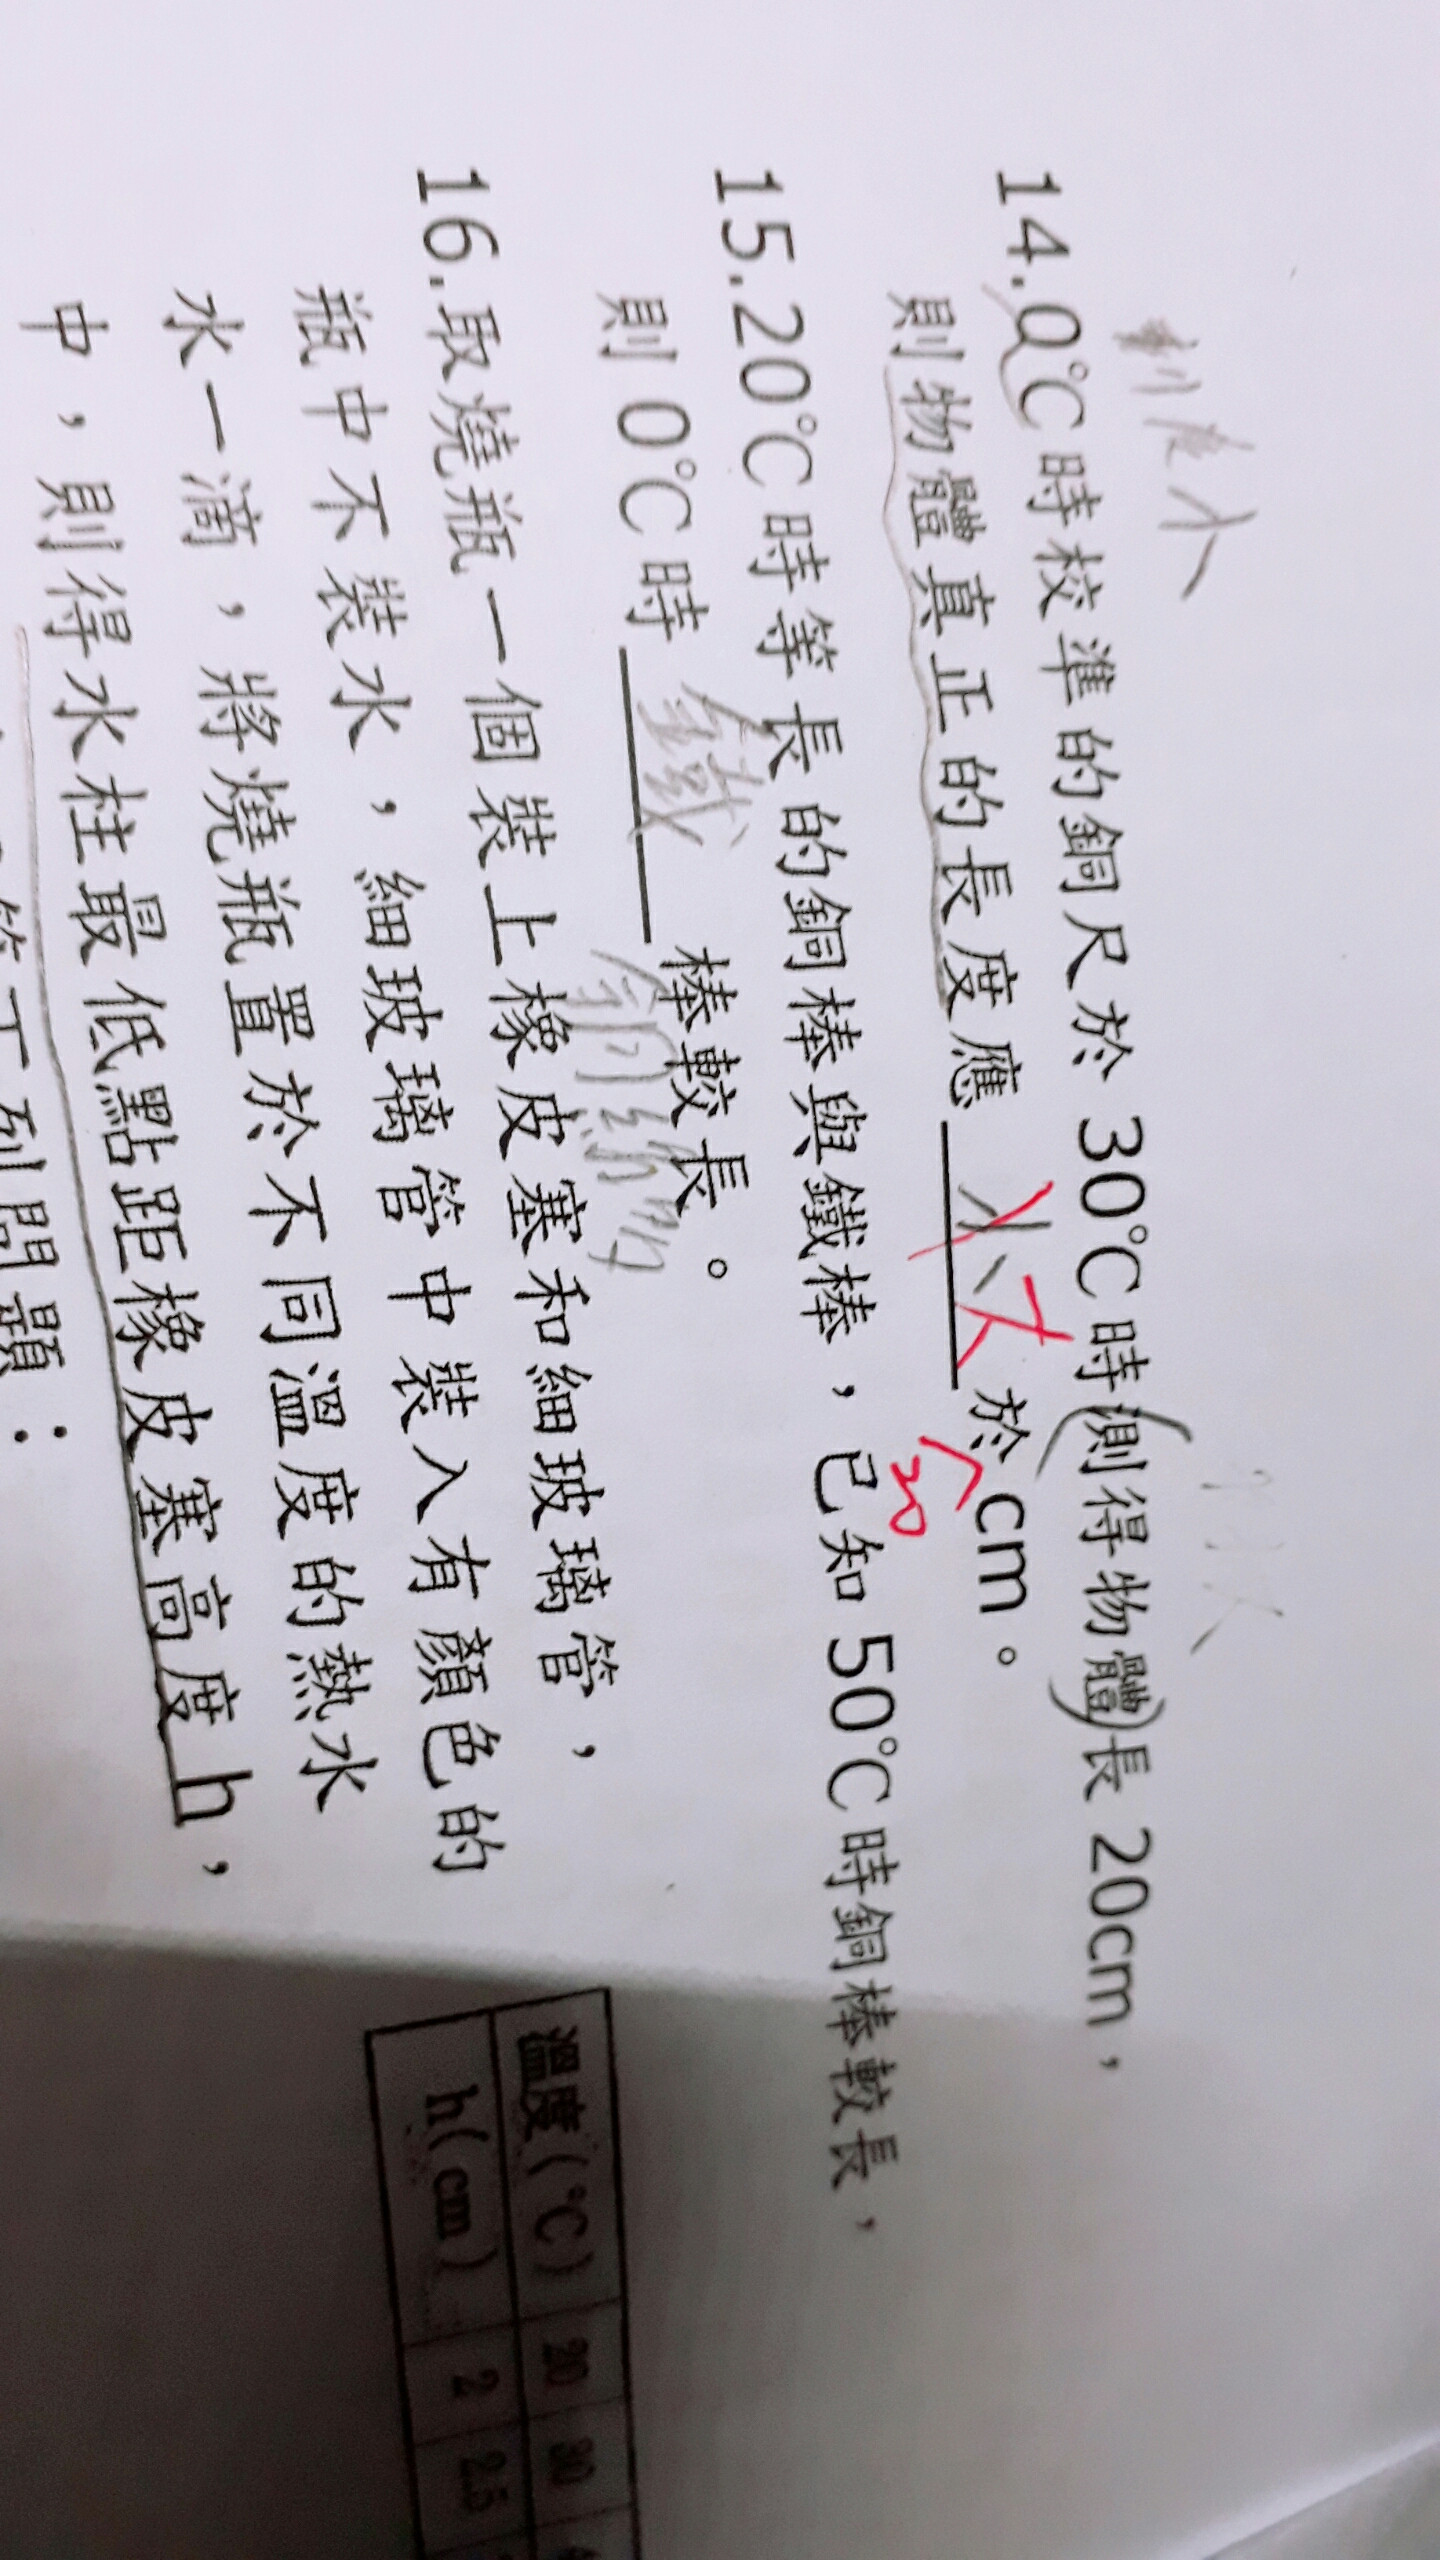 14.0℃時校準的銅尺於 30℃時測得物體長 20cm，
則物體真正的長度應 大 於 20 cm。
15.20℃時等長的銅棒與鐵棒，已知 50℃時銅棒較長，
則 0℃時 鐵 棒較長。
銅縮的多
16.取燒瓶一個裝上橡皮塞和細玻璃管，
瓶中不裝水，細玻璃管中裝入有顏色的
水一滴，將燒瓶置於不同溫度的熱水
中，則得水柱最低點距橡皮塞高度 h，
下列問題：
溫度(℃) 20 30
h(cm) 2 2.5